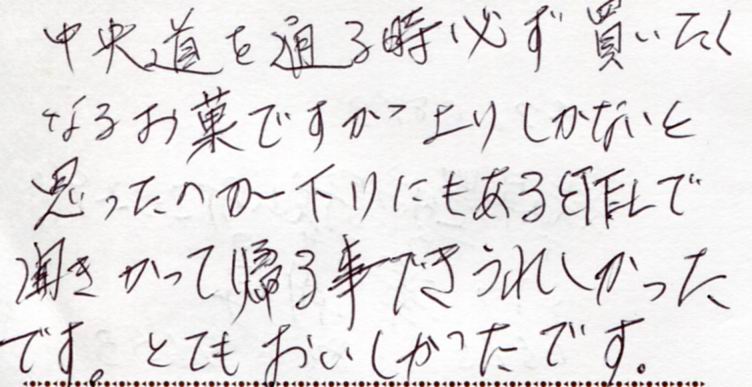 中央道を通る時必ず買いたく
なるお菓ですが上りしかないと
思ったのが下りにもあるで
聞きかって帰る事できうれしかった
です。とてもおいしかったです。